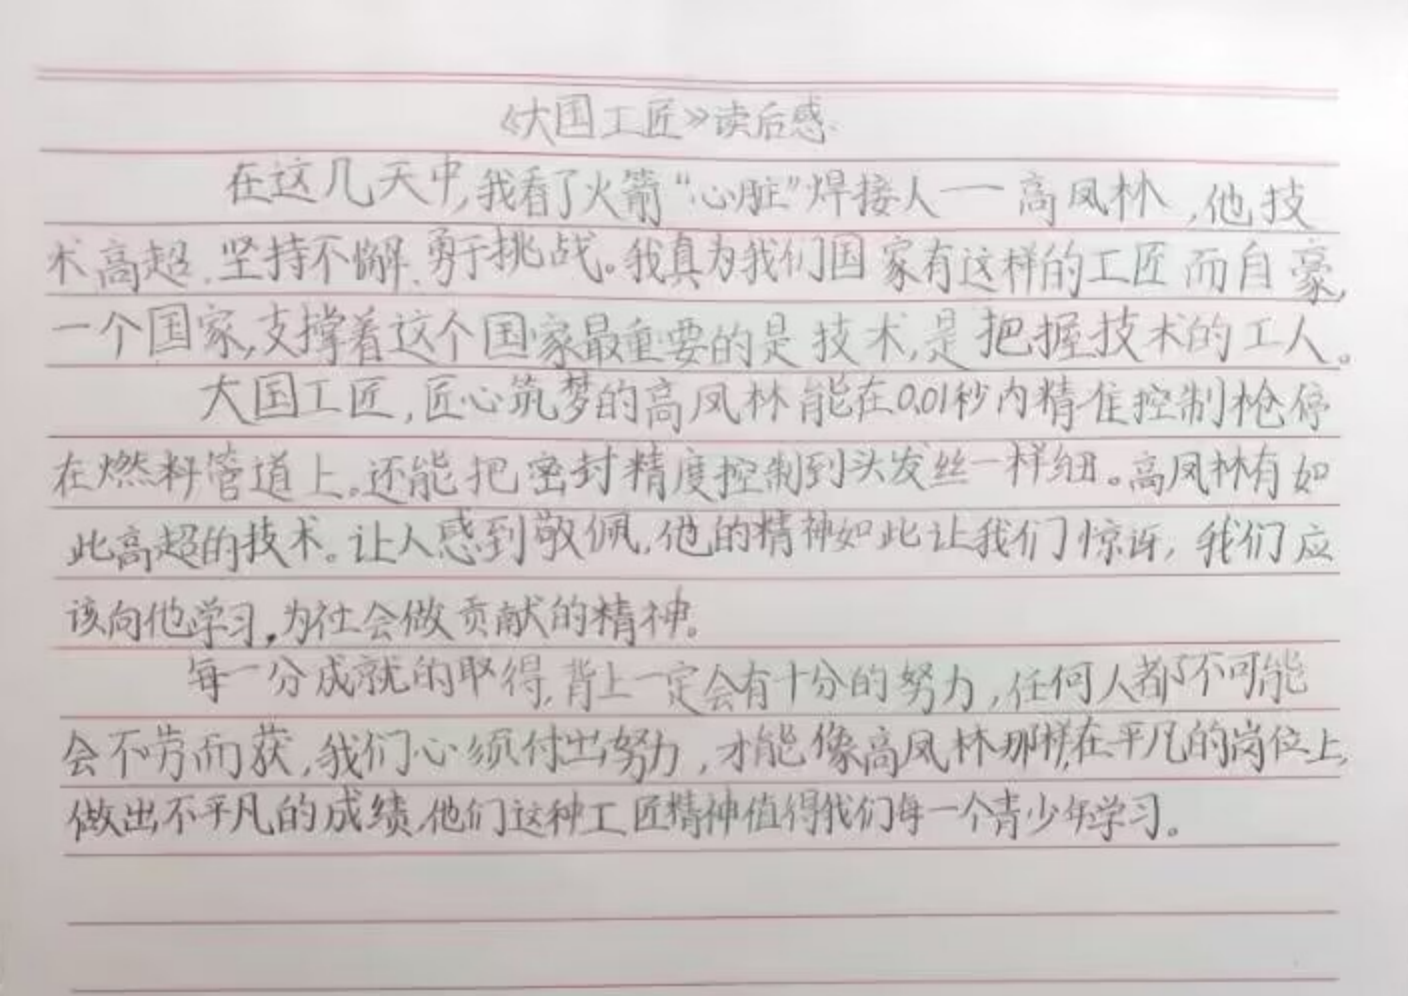 《大国工匠》读后感
在这几天中,我看了火箭“心脏”焊接人一高凤林,他技
术高超、坚持不懈、勇于挑战。我真为我们国家有这样的工匠而自豪,
一个国家,支撑着这个国家最重要的是技术,是把握技术的工人。
大国工匠,匠心筑梦的高凤林能在0.01秒内精准控制枪停
在燃料管道上。还能把密封精度控制到头发丝一样细。高凤林有如
此高超的技术。让人感到敬佩,他的精神如此让我们惊讶,我们应
该向他学习,为社会做贡献的精神。
每一分成就的取得,背上一定会有十分的努力,任何人都不可能
会不劳而获,我们心须付出努力,才能像高凤林那样,在平凡的岗位上,
做出不平凡的成绩,他们这种工匠精神值得我们每一个青少年学习。